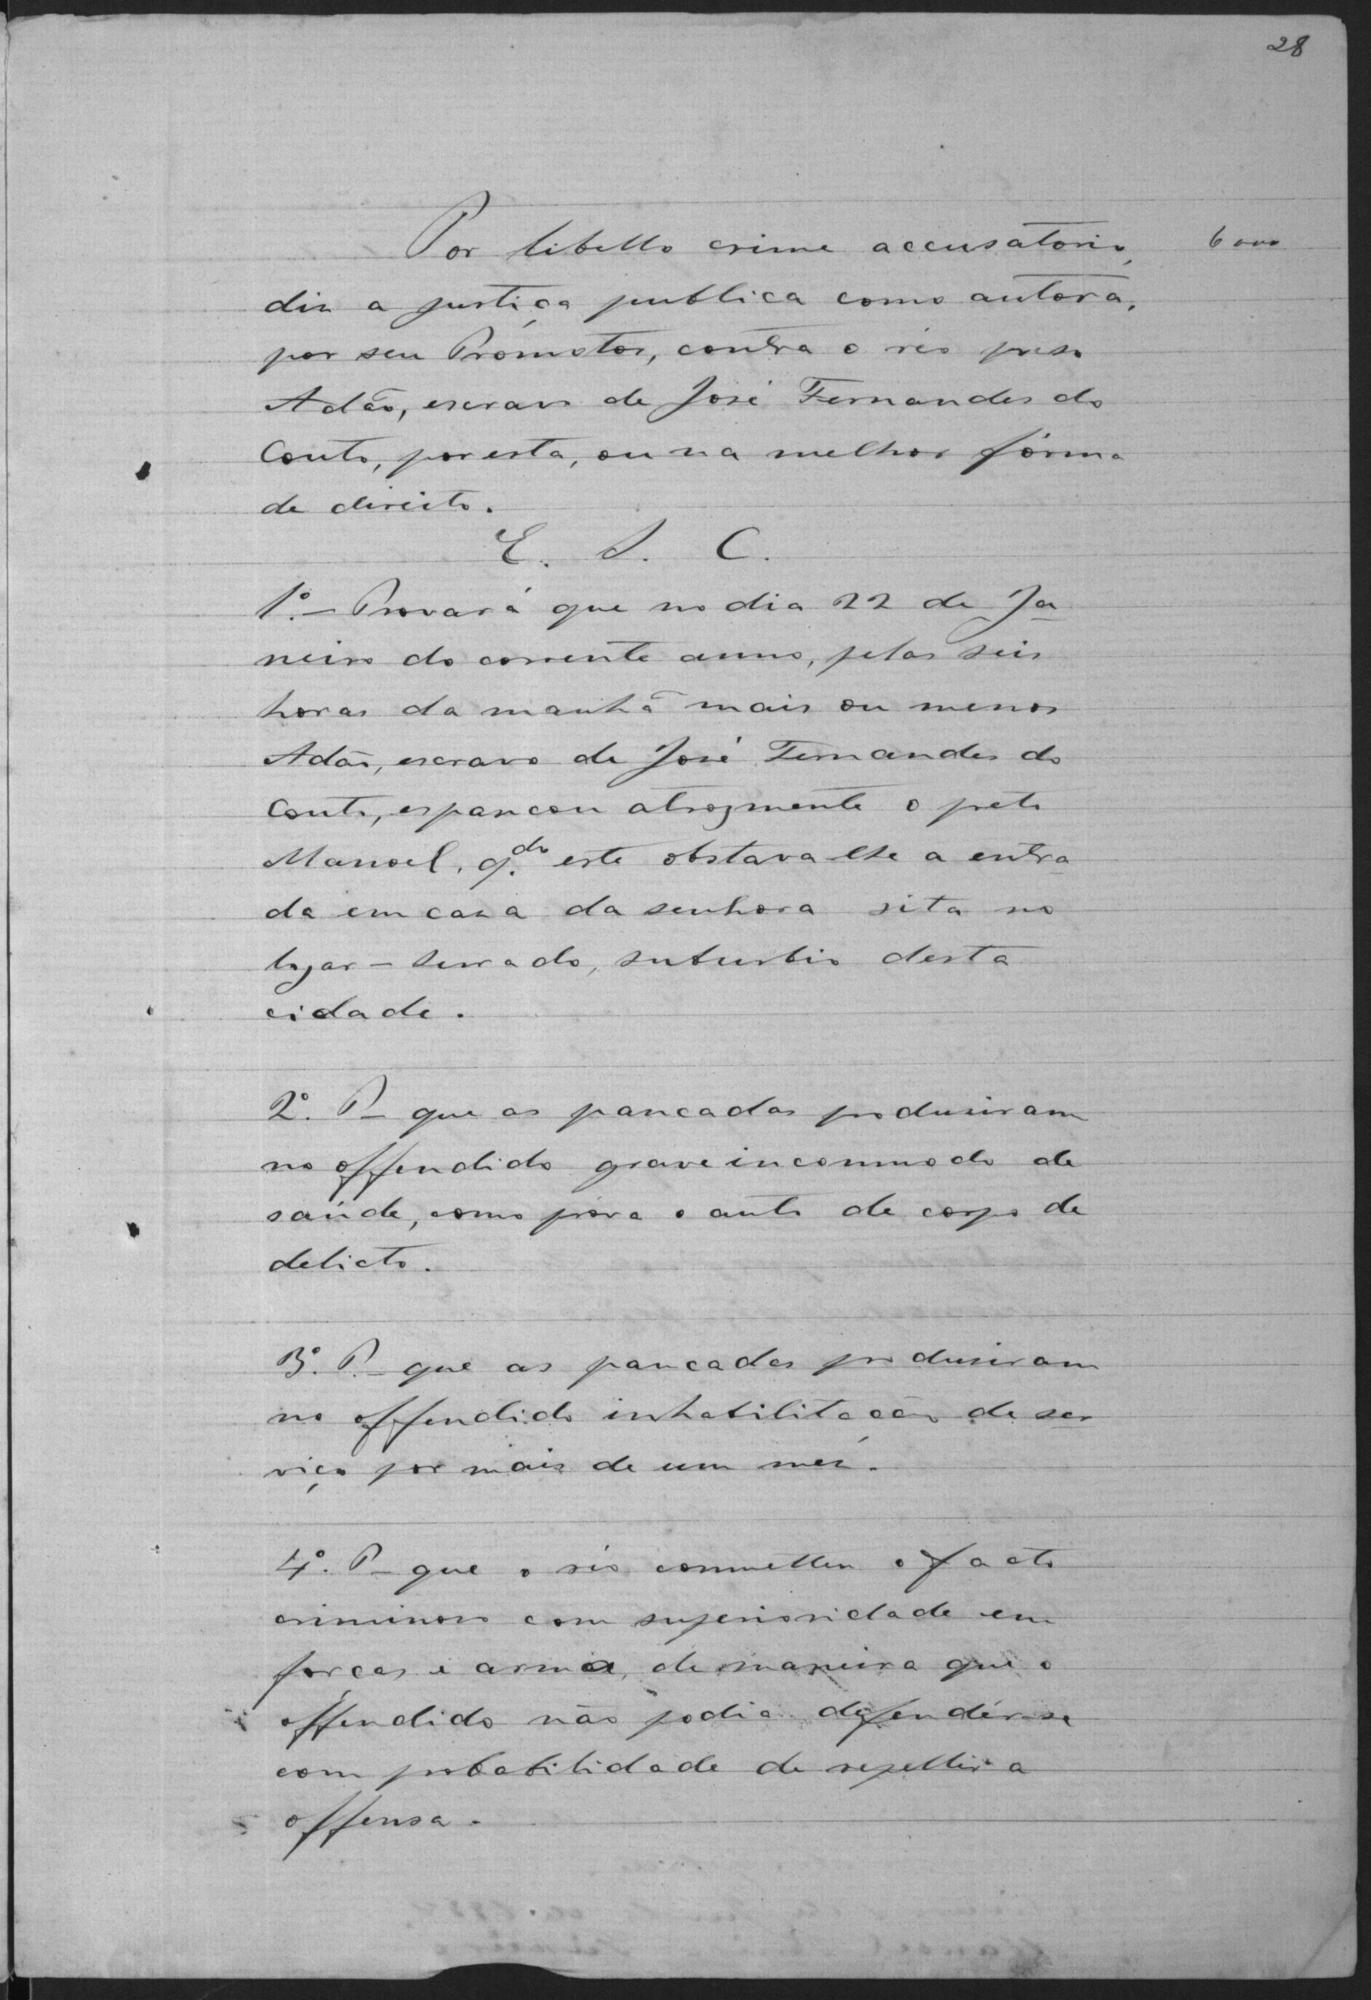 28
Por libello crime accusatorio,
6000
diz a justiça publica como autora,
por seu Promotor, contra o réo preso
Adão, escravo de José Fernandes do
Couto, por esta, ou na melhor fórma
de direito.
E. S. C.
1º. – Provará que no dia 22 de Ja
neiro do corrente anno, pelas seis
horas da manhã mais ou menos
Adão, escravo de José Fernandes do
Couto, espancou atrozmente o preto
Manoel, q.do este obstava-lhe a entra
da em casa da senhora sita no
lugar – Serrado, suburbio desta
cidade.
2º. P – que as pancadas produsiram
no offendido grave incommodo de
saúde, como prova o auto de corpo de
delicto.
3º. P. – que as pancadas produsiram
no offendido inhabilitação de ser
viço por mais de um mez.
4º. P – que o réo commetteu o facto
criminoso com superioridade em
forças e arma, de maneira que o
offendido não podia defender-se
com probabilidade de repellir a
offensa.